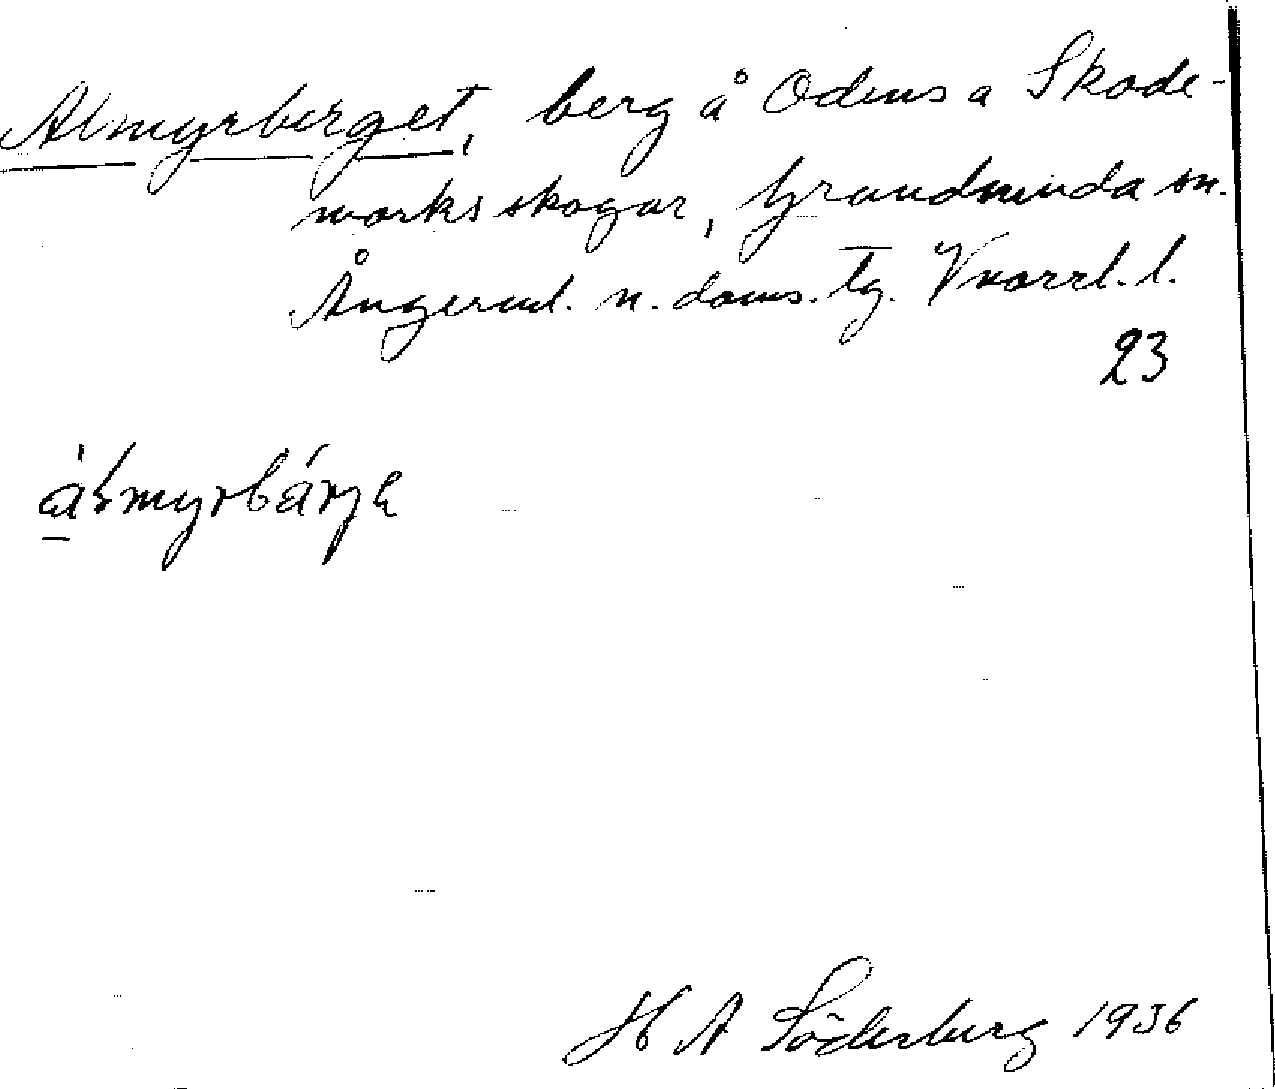 Almyrberget, berg å Odens a Skode-
marks skogar, Grundsunda sn.
Ångerml. n. doms. tg. Vnorrl. l.
23
àlmyrbárjε
H A Söderberg 1936